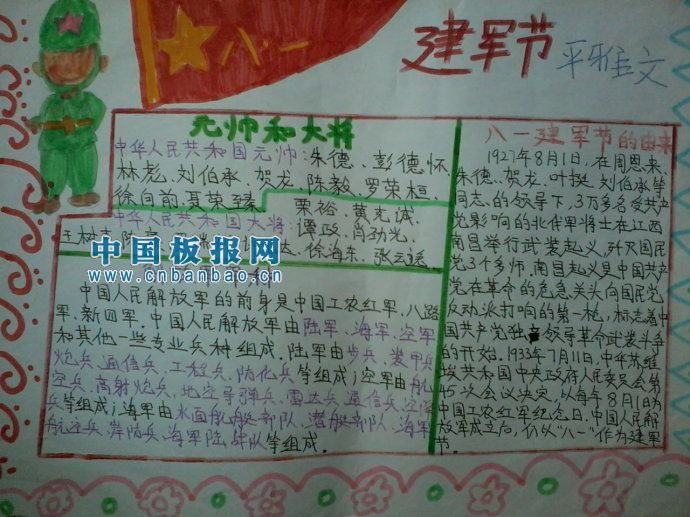 八一
建军节
平雅文
元帅和大将
中华人民共和国元帅:朱德、彭德怀
林彪、刘伯承、贺龙、陈毅、罗荣桓、
徐向前、聂荣臻
中华人民共和国大将: 粟裕、黄克诚、
谭政、肖劲光、
王树声、陈 徐海东、张云逸
中国板报网
www.cnbanbao.cn
中国人民解放军的前身是中国工农红军、八路
军、新四军。中国人民解放军由陆军、海军、空军
和其他一些专业兵种组成。陆军由步兵、装甲兵
炮兵、通信兵、工程兵、防化兵等组成;空军由航
空兵、高射炮兵、地空导弹兵、雷达兵、通信兵、空降
兵等组成;海军由水面舰艇部队、潜艇部队、海军
航空兵、岸防兵、海军陆战队等组成。
八一建军节的由来
1927年8月1日,在周恩来、
朱德、贺龙、叶挺、刘伯承等
同志的领导下,3万多名受共产
党影响的北伐军将士在江西
南昌举行武装起义,歼灭国民
党3个多师。南昌起义是中国共产
党在革命的危急关头向国民党
反动派打响的第一枪,标志着中
国共产党独立领导革命武装斗争
的开始。1933年7月11日,中华苏维
埃共和国中央政府人民委员会第
45次会议决定,以每年8月1日为
中国工农红军纪念日。中国人民解
放军成立后,仍以“八一”作为建军
节。